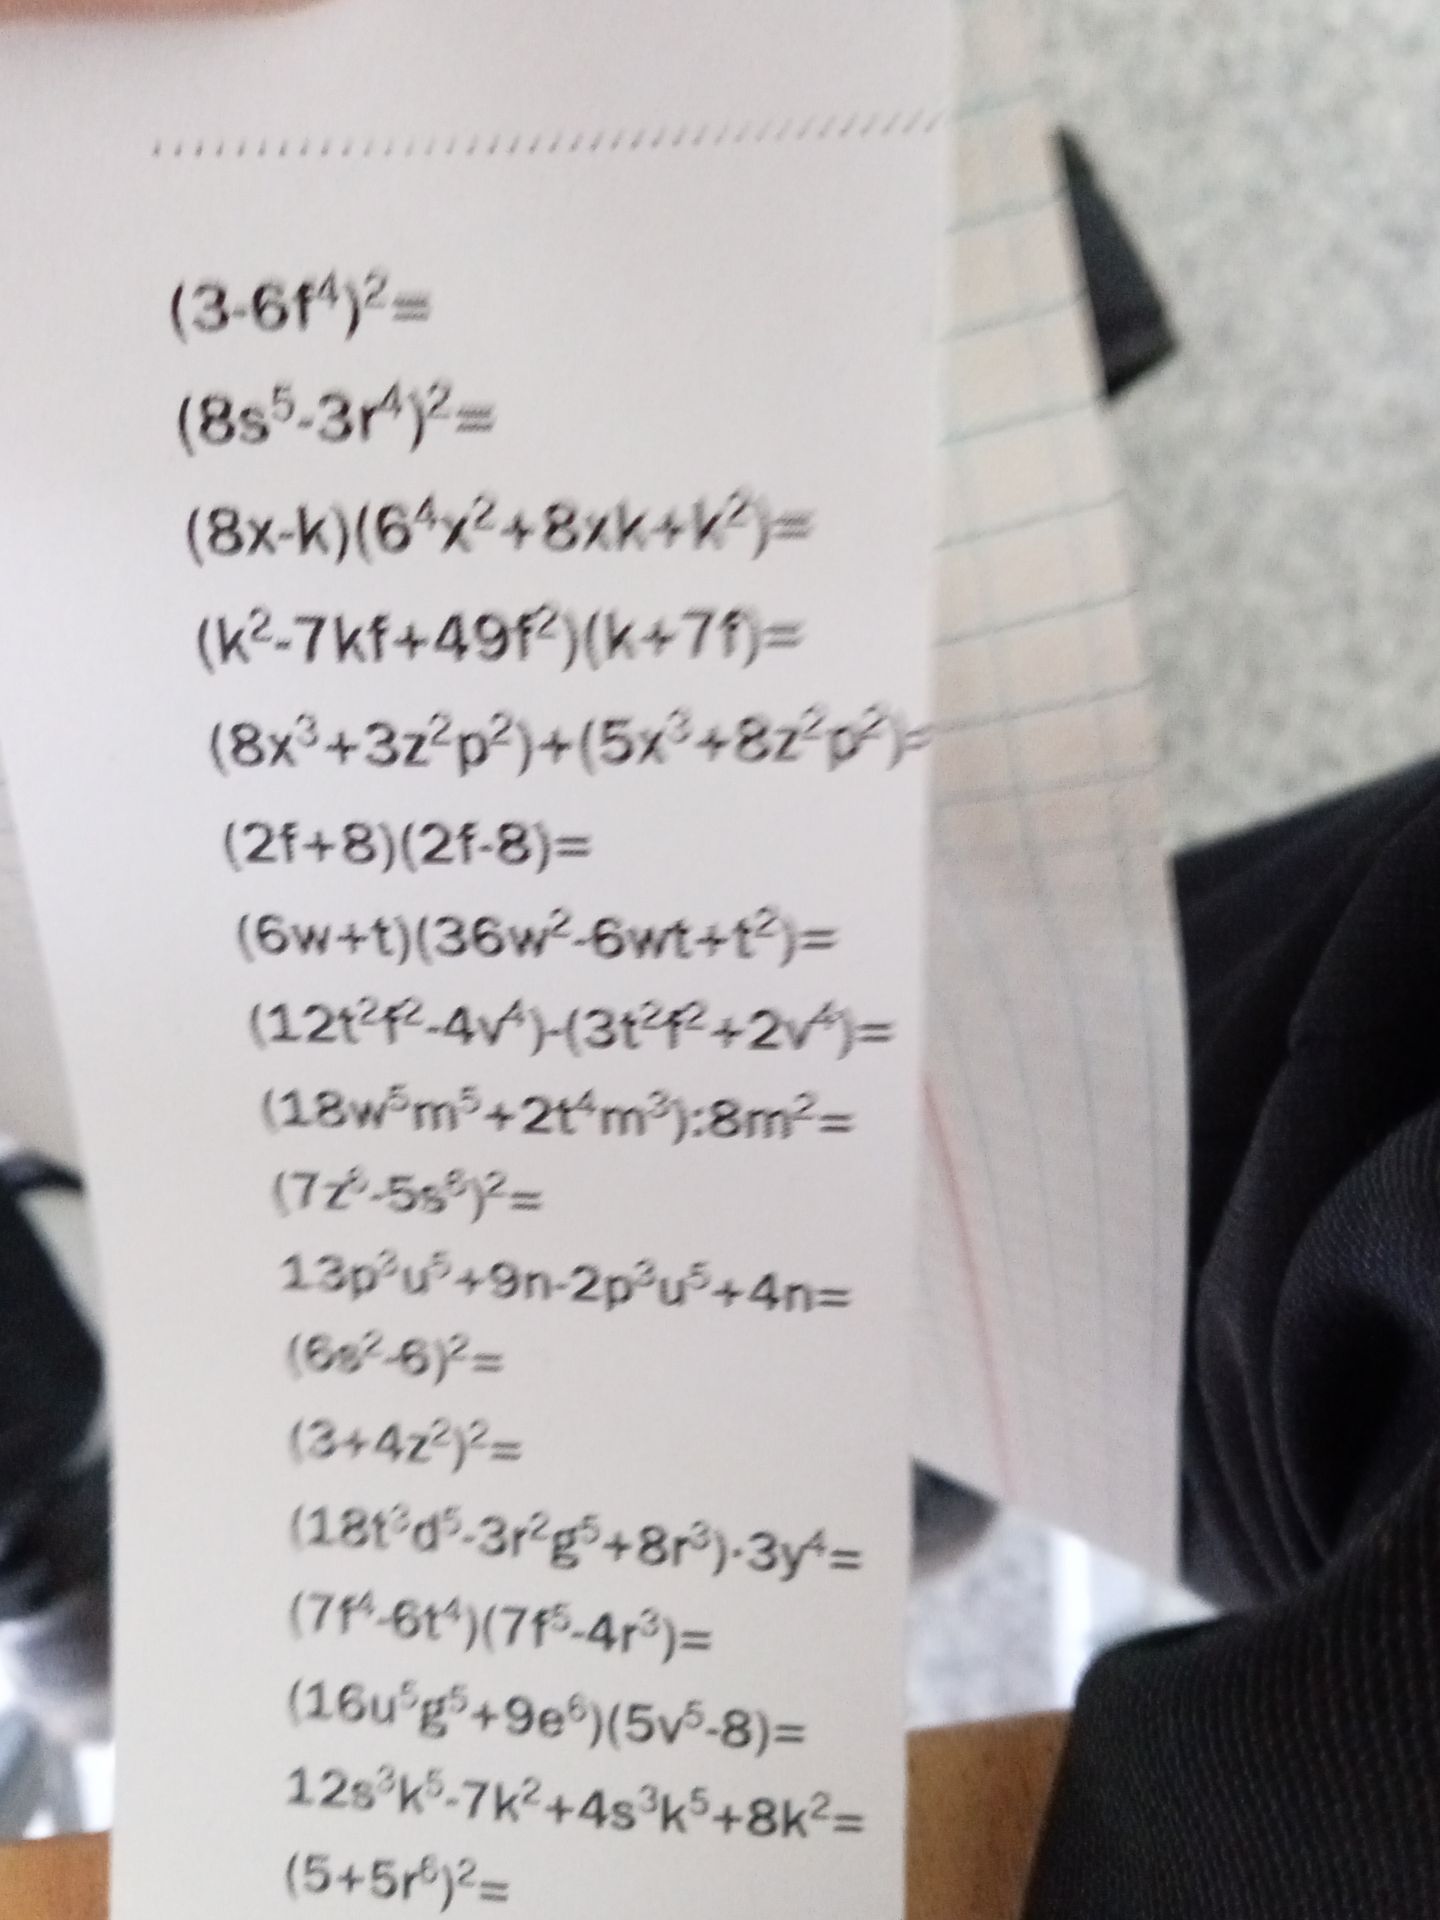 (3-6f⁴)²=
(8s⁵-3r⁴)²=
(8x-k)(6⁴x²+8xk+k²)=
(k²-7kf+49f²)(k+7f)=
(8x³+3z²p²)+(5x³+8z²p²)=
(2f+8)(2f-8)=
(6w+t)(36w²-6wt+t²)=
(12t²f²-4v⁴)-(3t²f²+2v⁴)=
(18w⁵m⁵+2t⁴m³):8m²=
(7z⁶-5s⁶)²=
13p³u⁵+9n-2p³u⁵+4n=
(6s²-6)²=
(3+4z²)²=
(18t³d⁵-3r²g⁵+8r³)·3y⁴=
(7f⁴-6t⁴)(7f⁵-4r³)=
(16u⁵g⁵+9e⁶)(5v⁵-8)=
12s³k⁵-7k²+4s³k⁵+8k²=
(5+5r⁶)²=